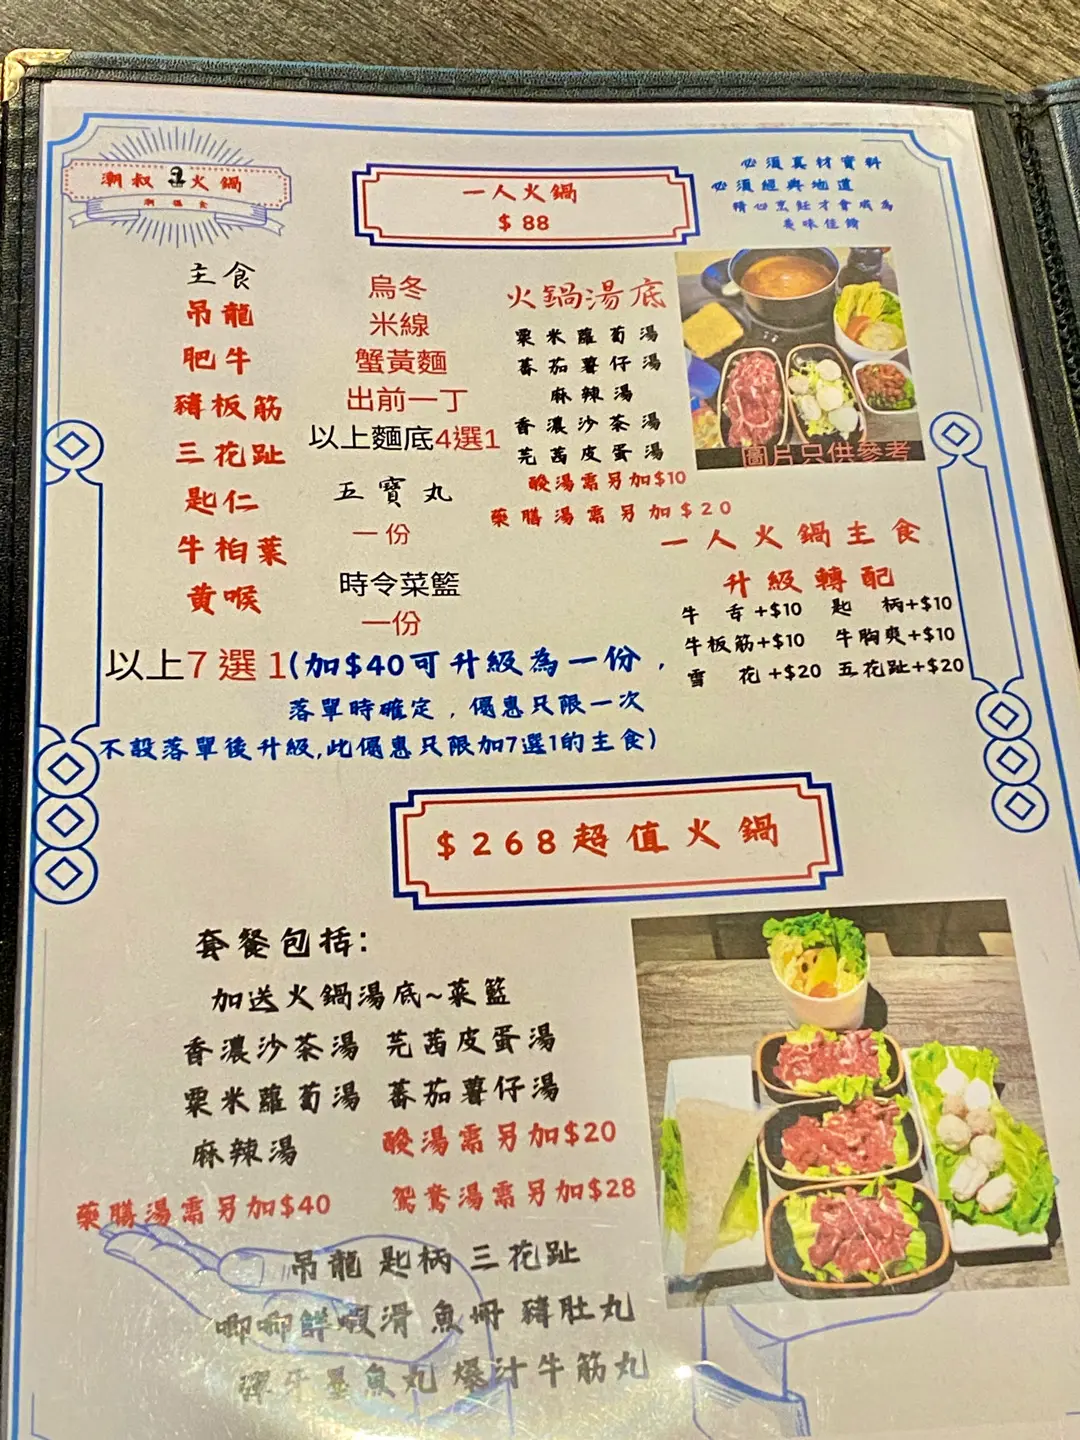 潮叔 火鍋
潮備食
一人火鍋
$ 88
必須真材實料
必須經典地道
精心烹飪才會成為
美味佳餚
主食
吊龍
肥牛
豬板筋
三花趾
匙仁
牛柏葉
黃喉
烏冬
米線
蟹黃麵
出前一丁
以上麵底4選1
五寶丸
一份
時令菜籃
一份
火鍋湯底
粟米蘿蔔湯
蕃茄薯仔湯
麻辣湯
香濃沙茶湯
芫茜皮蛋湯
酸湯需另加$10
藥膳湯需另加$20
圖片只供參考
一人火鍋主食
升級轉配
牛舌+$10 匙柄+$10
牛板筋+$10 牛胸爽+$10
雪花+$20 五花趾+$20
以上7選1(加$40可升級為一份，
落單時確定，優惠只限一次
不設落單後升級,此優惠只限加7選1的主食)
$268超值火鍋
套餐包括:
加送火鍋湯底~菜籃
香濃沙茶湯 芫茜皮蛋湯
粟米蘿蔔湯 蕃茄薯仔湯
麻辣湯 酸湯需另加$20
藥膳湯需另加$40 鴛鴦湯需另加$28
吊龍 匙柄 三花趾
唧唧鮮蝦滑 魚冊 豬肚丸
彈牙墨魚丸 爆汁牛筋丸